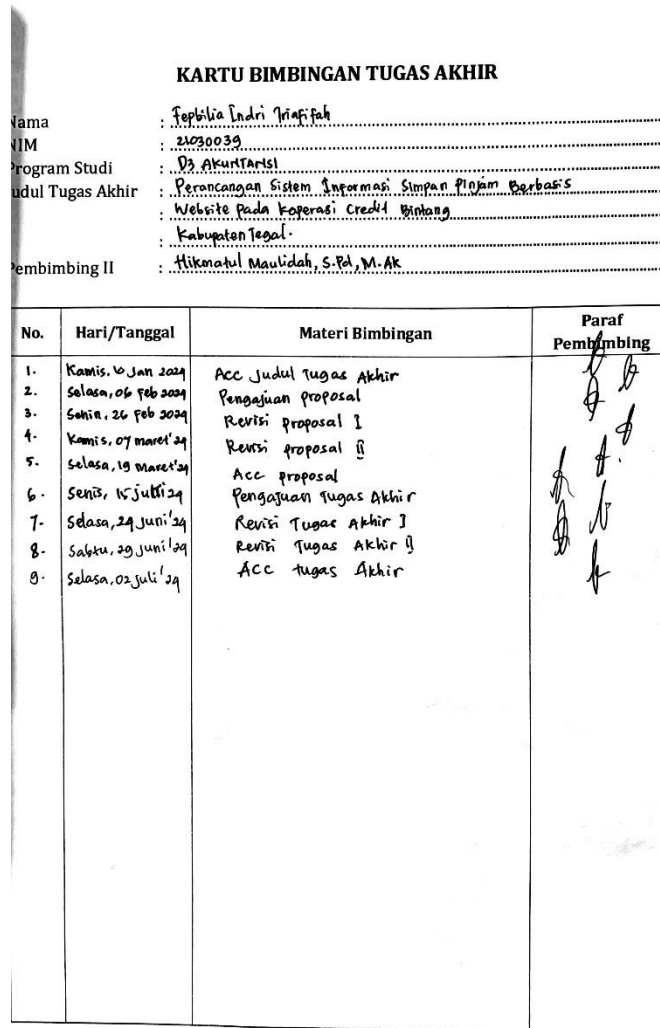 KARTU BIMBINGAN TUGAS AKHIR
Nama : Fepbilia Indri Triafifah
NIM : 21030039
Program Studi : D3 AKUNTANSI
Judul Tugas Akhir : Perancangan Sistem Informasi Simpan Pinjam Berbasis
: Website Pada Koperasi Credit Bintang
: Kabupaten Tegal.
Pembimbing II : Hikmatul Maulidah, S.Pd, M.Ak
No. Hari/Tanggal Materi Bimbingan Paraf Pembimbing
1. Kamis, Jan 2024 Acc Judul Tugas Akhir
2. Selasa, 06 Feb 2024 Pengajuan proposal
3. Senin, 26 Feb 2024 Revisi proposal I
4. Kamis, 07 maret'24 Revisi proposal II
5. Selasa, 19 Maret'24 Acc proposal
6. 15 24 Pengajuan Tugas Akhir
7. Selasa, 24 Juni '24 Revisi Tugas Akhir I
8. Sabtu, 29 Juni '24 Revisi Tugas Akhir II
9. Selasa, 02 Juli '24 Acc tugas Akhir